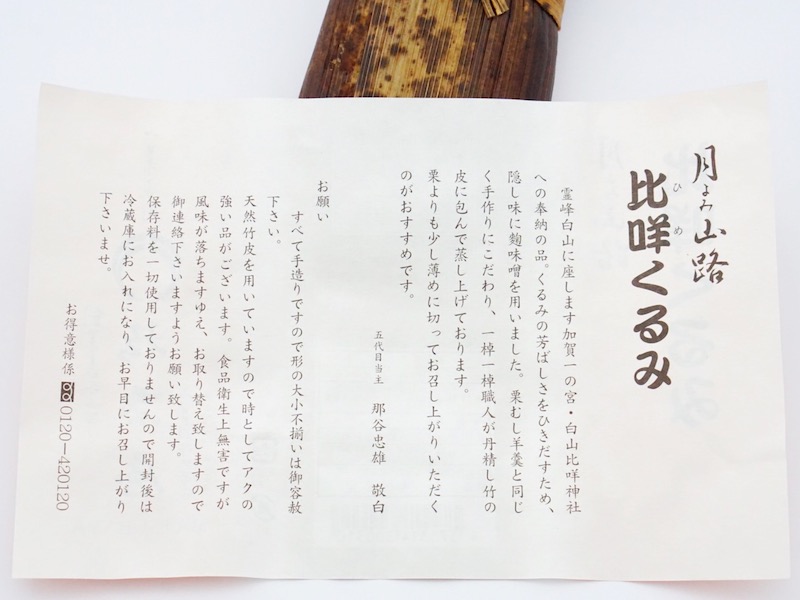 月よみ山路
比咩くるみ
ひめ
霊峰白山に座します加賀一の宮・白山比咩神社
への奉納の品。くるみの芳ばしさをひきだすため、
隠し味に麹味噌を用いました。栗むし羊羹と同じ
く手作りにこだわり、一棹一棹職人が丹精し竹の
皮に包んで蒸し上げております。
栗よりも少し薄めに切ってお召し上がりいただく
のがおすすめです。
五代目当主 那谷忠雄 敬白
お願い
すべて手造りですので形の大小不揃いは御容赦
下さい。
天然竹皮を用いていますので時としてアクの
強い品がございます。食品衛生上無害ですが
風味が落ちますゆえ、お取り替え致しますので
御連絡下さいますようお願い致します。
保存料を一切使用しておりませんので開封後は
冷蔵庫にお入れになり、お早目にお召し上がり
下さいませ。
お得意様係 0120-420120